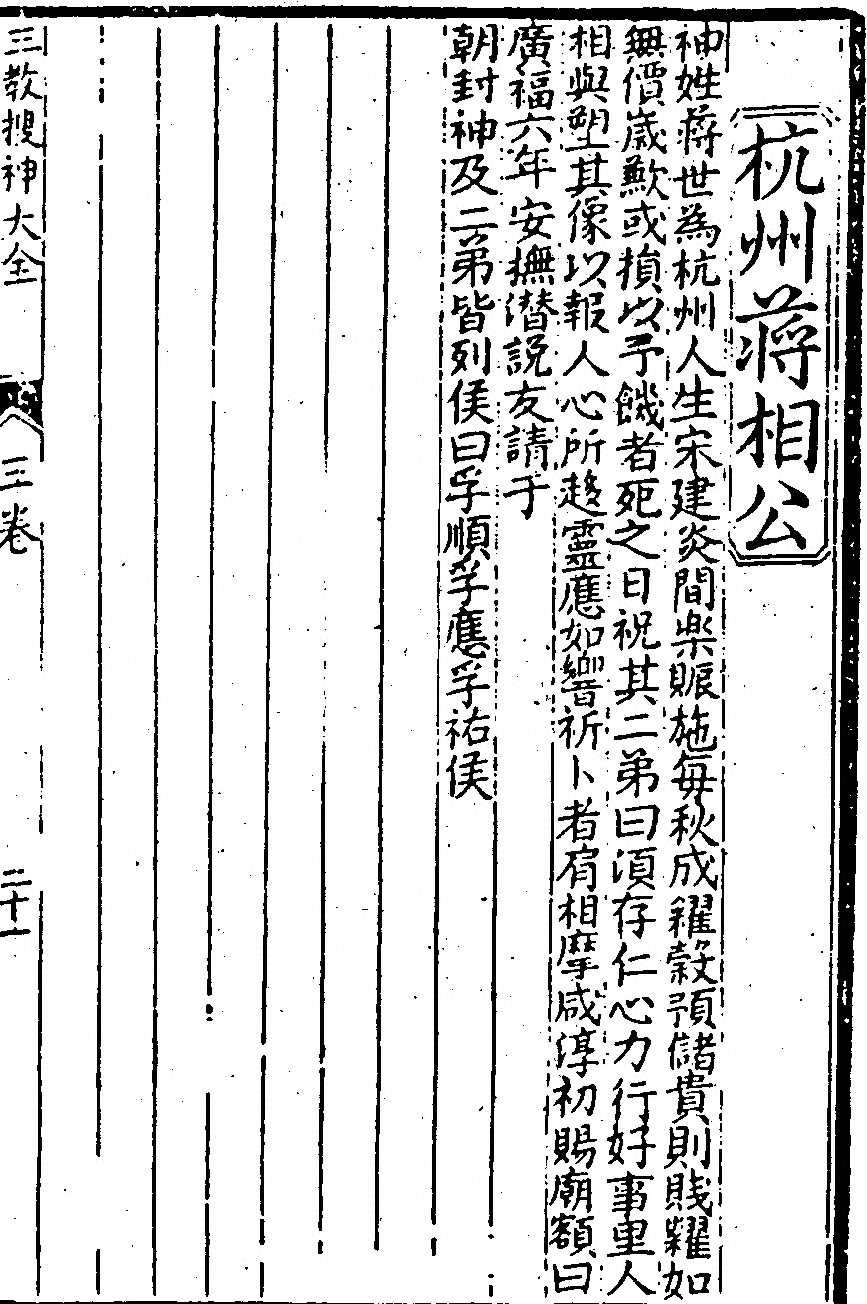 杭州蔣相公
神姓蔣世為杭州人生宋建炎間樂賑施每秋成糴穀預儲貴則賤糶如
無價歲歉或損以予饑者死之日祝其二弟曰須存仁心力行好事里人
相與塑其像以報人心所趍靈應如響祈卜者肩相摩咸淳初賜廟額曰
廣福六年安撫潛說友請于
朝封神及二弟皆列侯曰孚順孚應孚祐侯
三教搜神大全 三卷 二十一